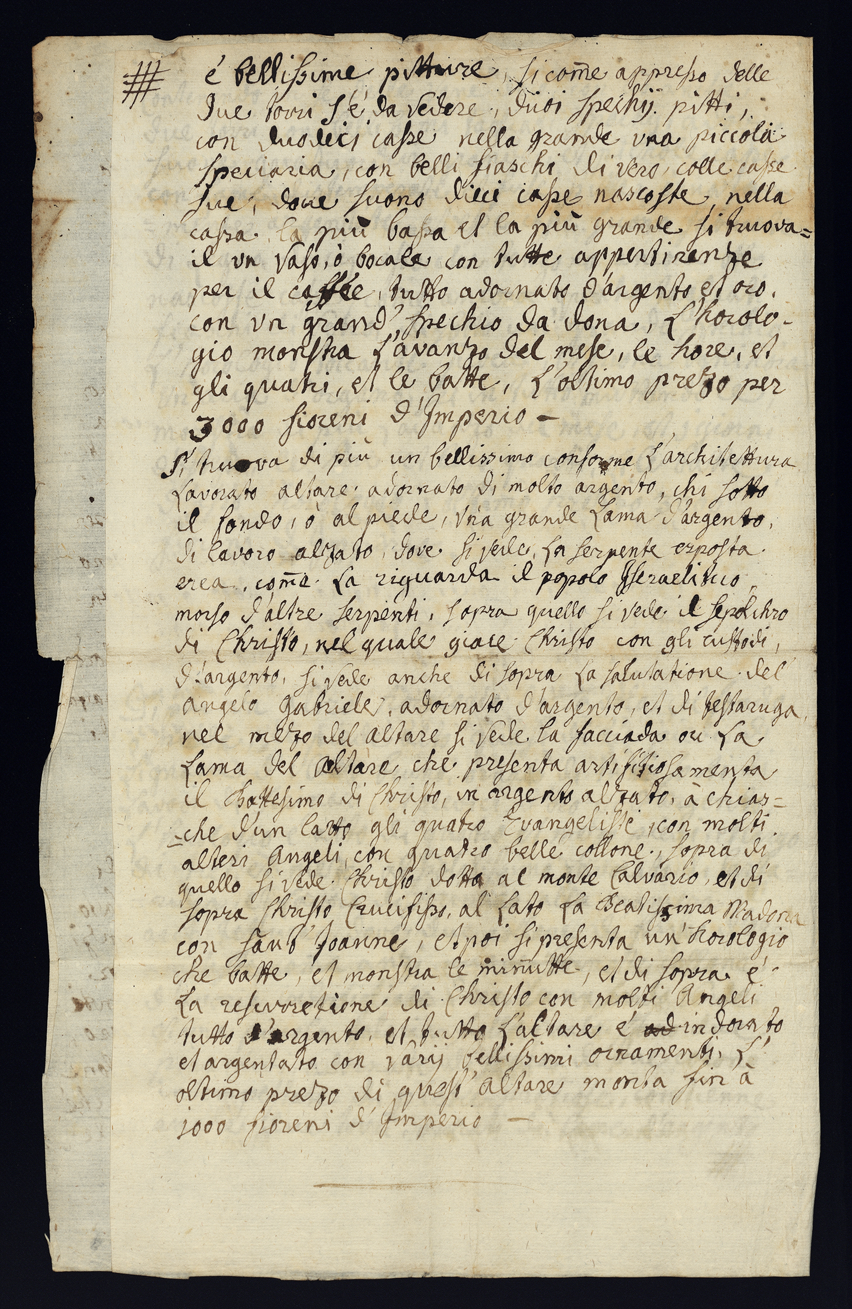 # é bellissime pitture, sicom̃e appresso delle
due torri s'é da vedere, duoi spechij pitti,
con duodeci casse nella grande vna piccola
speciaria, con belli fiaschi di vero, colle casse
sue, doue suono dieci casse nascoste, nella
cassa la più bassa et la più grande si truova=
il vn vaso, ò bocale con tutte appertinenze
per il caffée, tutto adornato d'argento et oro,
con vn grand' spechio da dona, L'horolo-
gio monstra l'avanzo del mese, le hore, et
gli quatri, et le batte, L'oltimo prezo per
3000 fioreni d'Imperio -
Si truova di più un bellissimo conforme L'architettura
Lavorato altare adornato di molto argento, chi sotto
il fondo, ò al piede, vna grande Lama d'argento,
di lavoro alzato, dove si vede, La serpente exposta
erea, com̃e La riguarda il popolo Isseraelitico
morso d'altre serpenti, sopra quello si vede il sepolchro
di Christo, nel quale giace Christo con gli custodi,
d'argento, si vede anche di sopra La salutatione del
Angelo Gabriele, adornato d'argento, et di testaruga,
nel mezo del altare si vede la facciada ou La
Lama del Altare che presenta artifitiosamenta
il Battesimo di Christo, in argento alzato, à chias=
=che d'un latto gli quatro Evangeliste, con molti
alteri Angeli, con quatro belle collone, sopra di
quello si vede Christo dotta al monte Calvario, et di
sopra Christo Crucifisso, al Lato La Beatissima Madona
con sanct' Joanne, et poi si presenta un' horologio
che batte, et monstra le min̄utte, et di sopra é
La resurretione di Christo con molti Angeli
tutto d'argento, et tutto L'altare é ad indorato
et argentato con varij bellissimi ornamenti, L'
oltimo prezo di quest' altare monta fin' à
1000 fioreni d'Imperio -